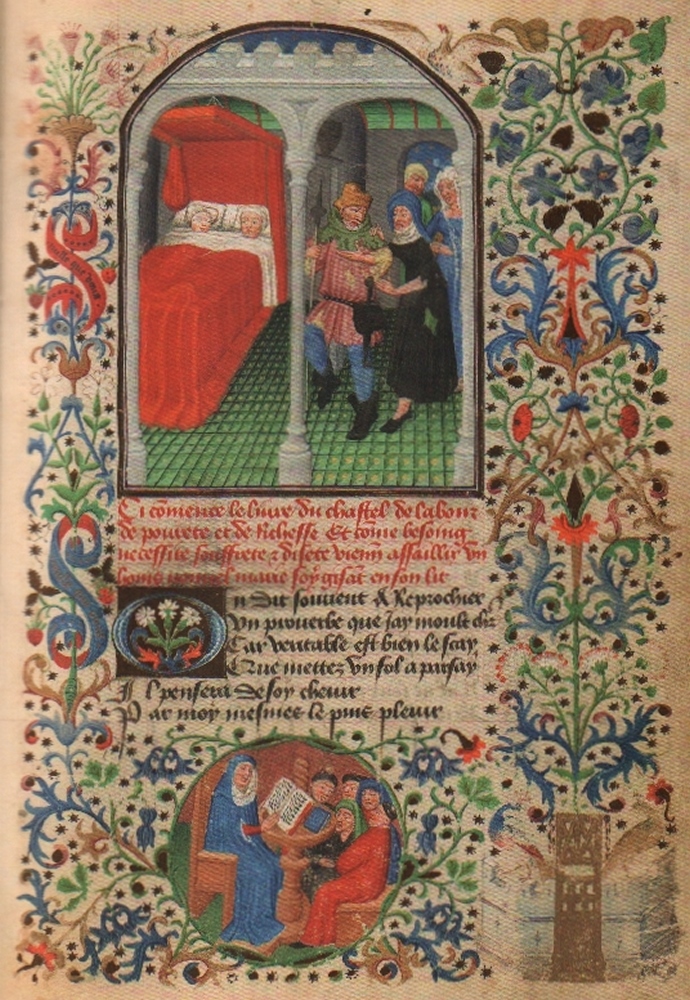 Ci cōmence le livre du chastel de labour
de povrete et de Richesse Et cōme besoing
necessite souffrete ⁊ disete vienn assaillir vn
home nouvel marie soy gisāt en son lit
On dit souvent & Reprochier
Vn prouerbe que Jay moult chr
Car veritable est bien le scay
Que mettez vn fol a parsay
Il pensera de soy cheuir
Par moy mesmes le puis pleuir